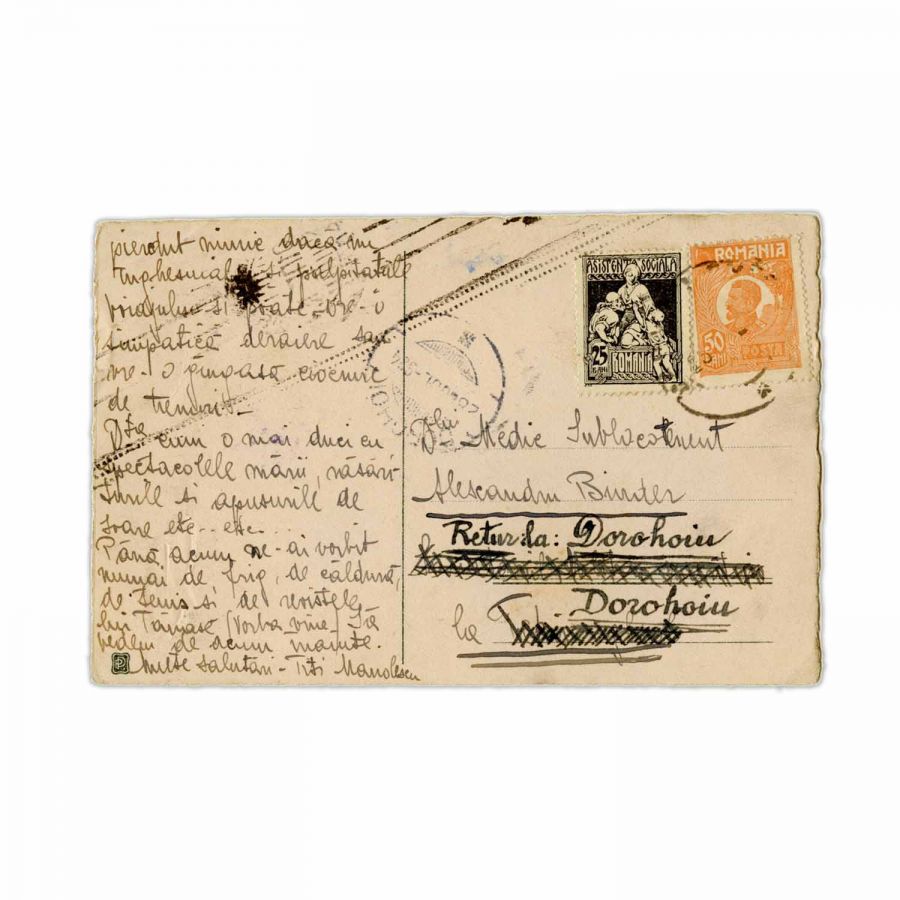 pierdut nimic dacă nu
înghesuială și palpitațiile
voiajului și poate vre-o
simpatică deraiere sau
vre-o gingașă ciocnire
de trenuri.
D-ta cum o mai duci cu
spectacolele mării, răsări-
turile și apusurile de
soare etc.. etc...
Până acum ne-ai vorbit
numai de frig, de căldură,
de Tenis și de revistele
lui Tănase (vorba vine)
de acum înainte.
Multe salutări - Titi Manolescu
ASISTENȚA SOCIALA
25
BANI
ROMANIA
ROMANIA
50
BANI
POSTA
D-lui Medic Sublocotenent
Alexandru Binder
Retur: la: Dorohoiu
Dorohoiu
la